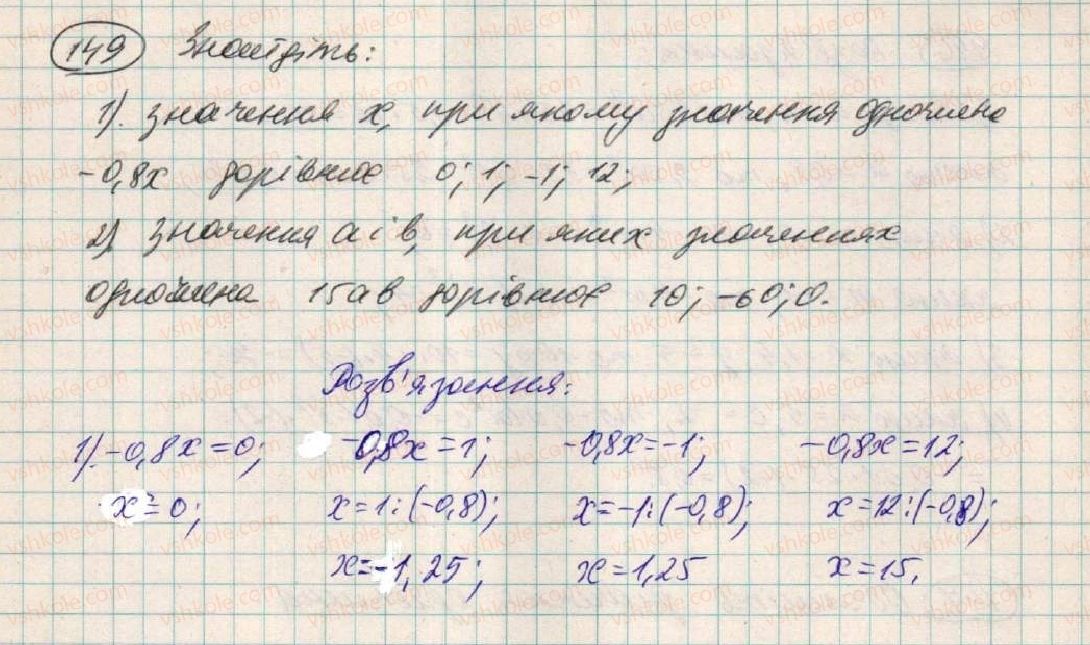 149 Знайдіть:
1). значення х, при якому значення одночлена
-0,8х дорівнює 0; 1; -1; 12;
2) значення а і в, при яких значеннях
одночлена 15ав дорівнює 10; -60; 0.
Розв'язання:
1). -0,8х = 0; -0,8х = 1; -0,8х = -1; -0,8х = 12;
х = 0; х = 1 : (-0,8); х = -1 : (-0,8); х = 12 : (-0,8);
х = -1,25; х = 1,25 х = 15.